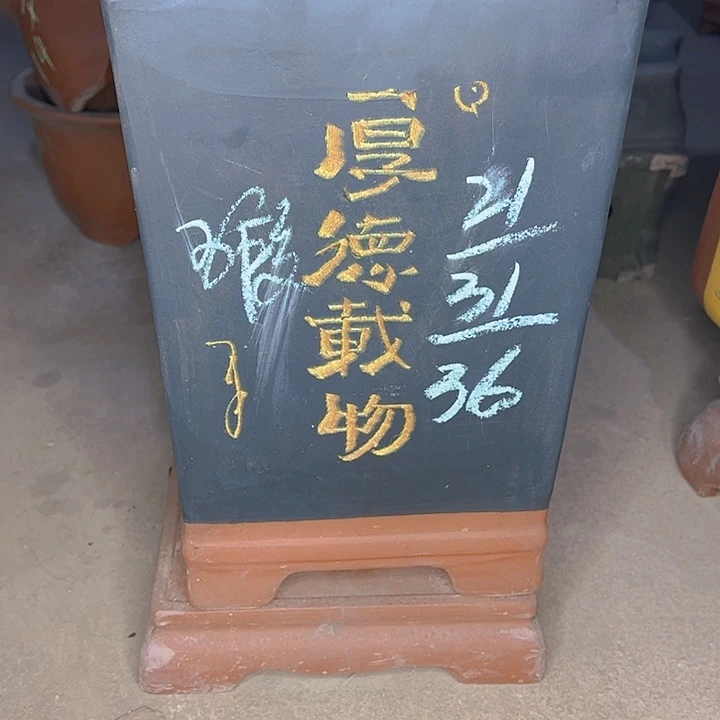 厚德載物
21
31
36